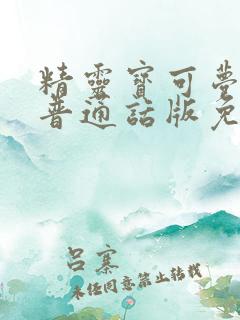 精靈寶可夢
普通話版免
呂寨
未经同意禁止转载